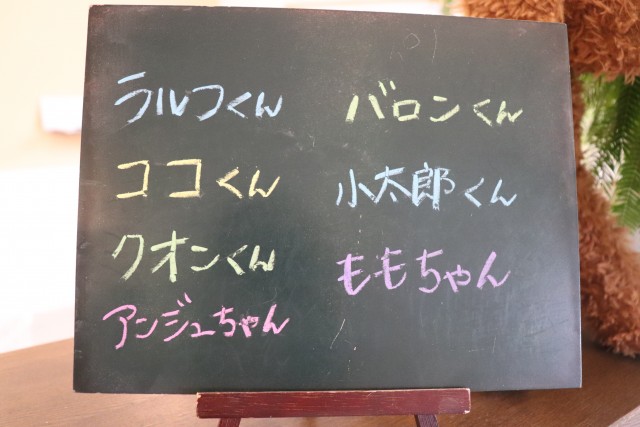 ラルフくん
ココくん
クオンくん
アンジュちゃん
バロンくん
小太郎くん
ももちゃん